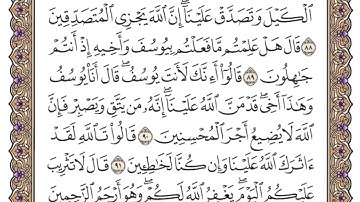 ٱلْكَيْلَ وَتَصَدَّقْ عَلَيْنَآ ۖ إِنَّ ٱللَّهَ يَجْزِى ٱلْمُتَصَدِّقِينَ
٨٨ قَالَ هَلْ عَلِمْتُم مَّا فَعَلْتُم بِيُوسُفَ وَأَخِيهِ إِذْ أَنتُمْ
جَٰهِلُونَ ٨٩ قَالُوٓا۟ أَءِنَّكَ لَأَنتَ يُوسُفُ ۖ قَالَ أَنَا۠ يُوسُفُ
وَهَٰذَآ أَخِى ۖ قَدْ مَنَّ ٱللَّهُ عَلَيْنَآ ۖ إِنَّهُۥ مَن يَتَّقِ وَيَصْبِرْ فَإِنَّ
ٱللَّهَ لَا يُضِيعُ أَجْرَ ٱلْمُحْسِنِينَ ٩٠ قَالُوا۟ تَٱللَّهِ لَقَدْ
ءَاثَرَكَ ٱللَّهُ عَلَيْنَا وَإِن كُنَّا لَخَٰطِـِٔينَ ٩١ قَالَ لَا تَثْرِيبَ
عَلَيْكُمُ ٱلْيَوْمَ ۖ يَغْفِرُ ٱللَّهُ لَكُمْ ۖ وَهُوَ أَرْحَمُ ٱلرَّٰحِمِينَ